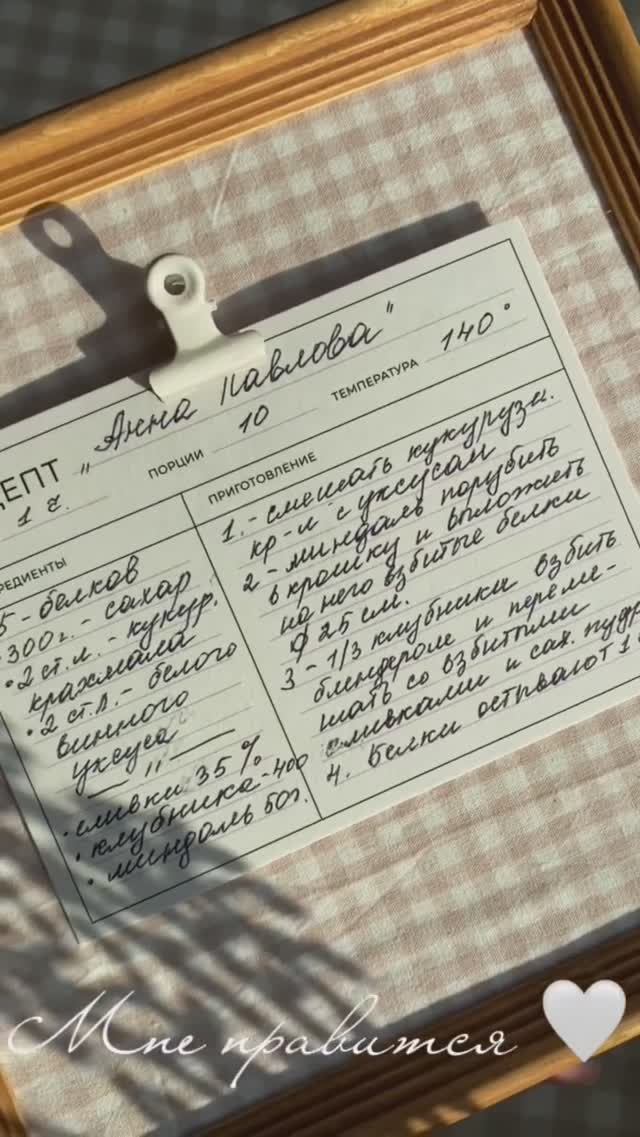 ЕПТ „Анна Павлова"
1 ч.
ПОРЦИИ 10
ТЕМПЕРАТУРА 140°
РЕДИЕНТЫ
5 - белков
300 г. - сахар
• 2 ст.л. - кукур.
крахмала
• 2 ст.л. - белого
винного
уксуса
— „ —
• сливки 35 %
• клубника - 400
• миндаль 50г.
ПРИГОТОВЛЕНИЕ
1. - смешать кукурузн.
кр-л с уксусом
2 - миндаль порубить
в крошку и выложить
на него взбитые белки
25 см.
3 - 1/3 клубники взбить
блендером и переме-
шать со взбитыми
сливками и сах. пудр
4. Белки остывают 1
Мне нравится